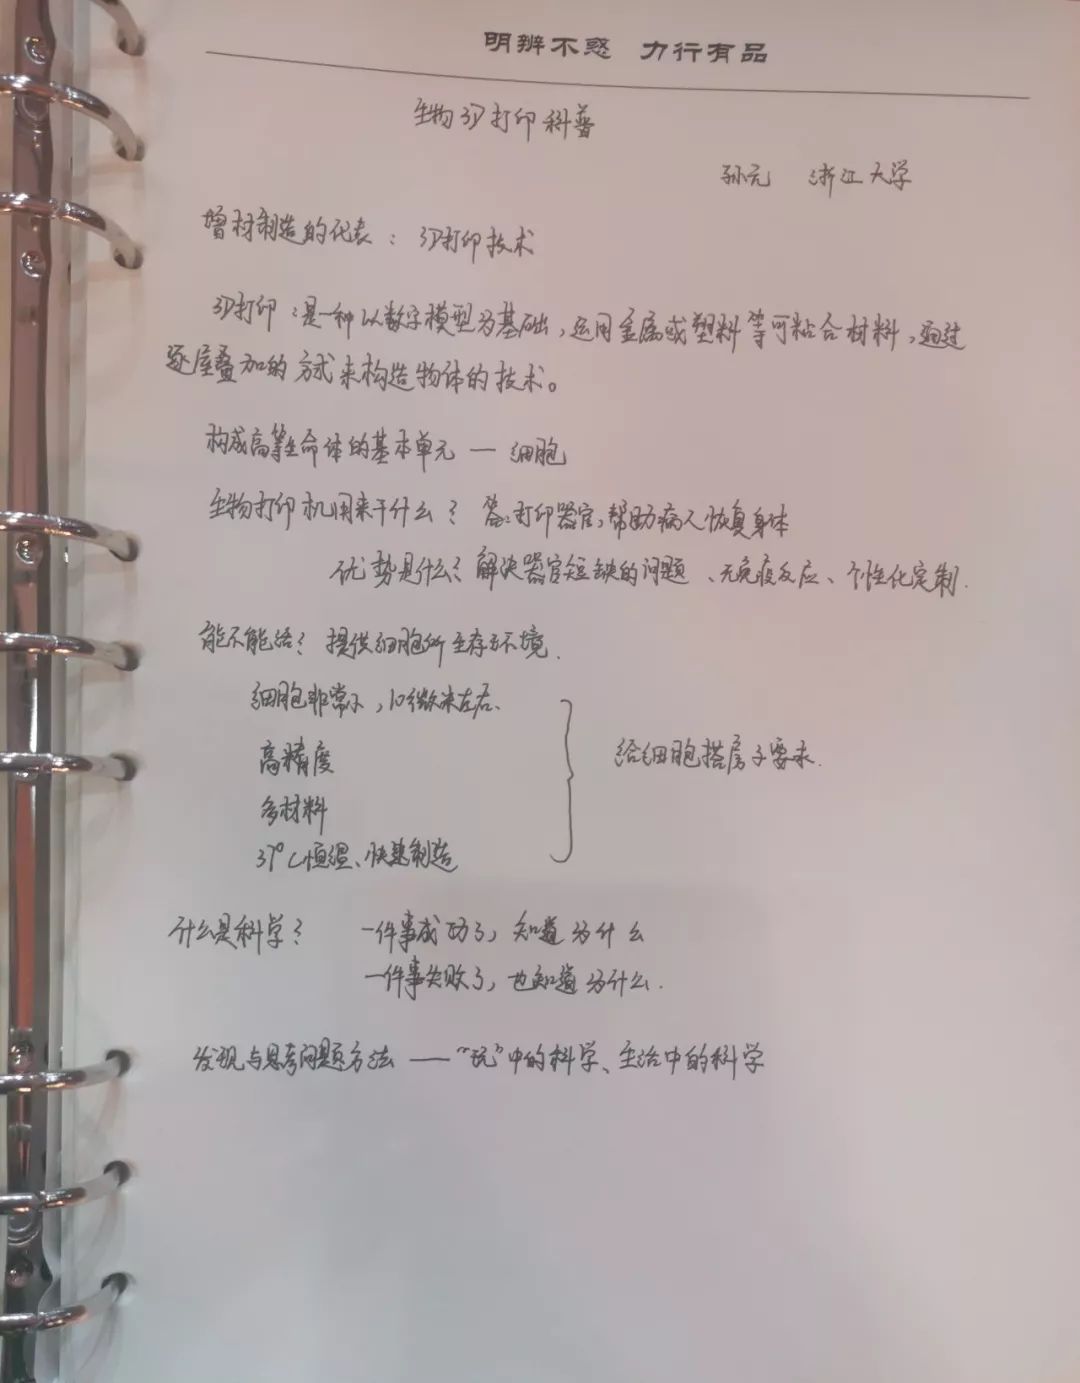 明辨不惑 力行有品
生物3D打印科普
孙元 浙江大学
增材制造的代表：3D打印技术
3D打印：是一种以数字模型为基础，运用金属或塑料等可粘合材料，通过
逐层叠加的方式来构造物体的技术。
构成高等生命体的基本单元 — 细胞
生物打印机用来干什么？ 答：打印器官，帮助病人恢复身体
优势是什么？解决器官短缺的问题、无免疫反应、个性化定制.
能不能活？提供细胞所生存环境.
细胞非常小，10微米左右、
高精度
多材料
37℃恒温、快速制造
给细胞搭房子要求.
什么是科学？ 一件事成功了，知道为什么
一件事失败了，也知道为什么.
发现与思考问题方法 ——“玩”中的科学、生活中的科学